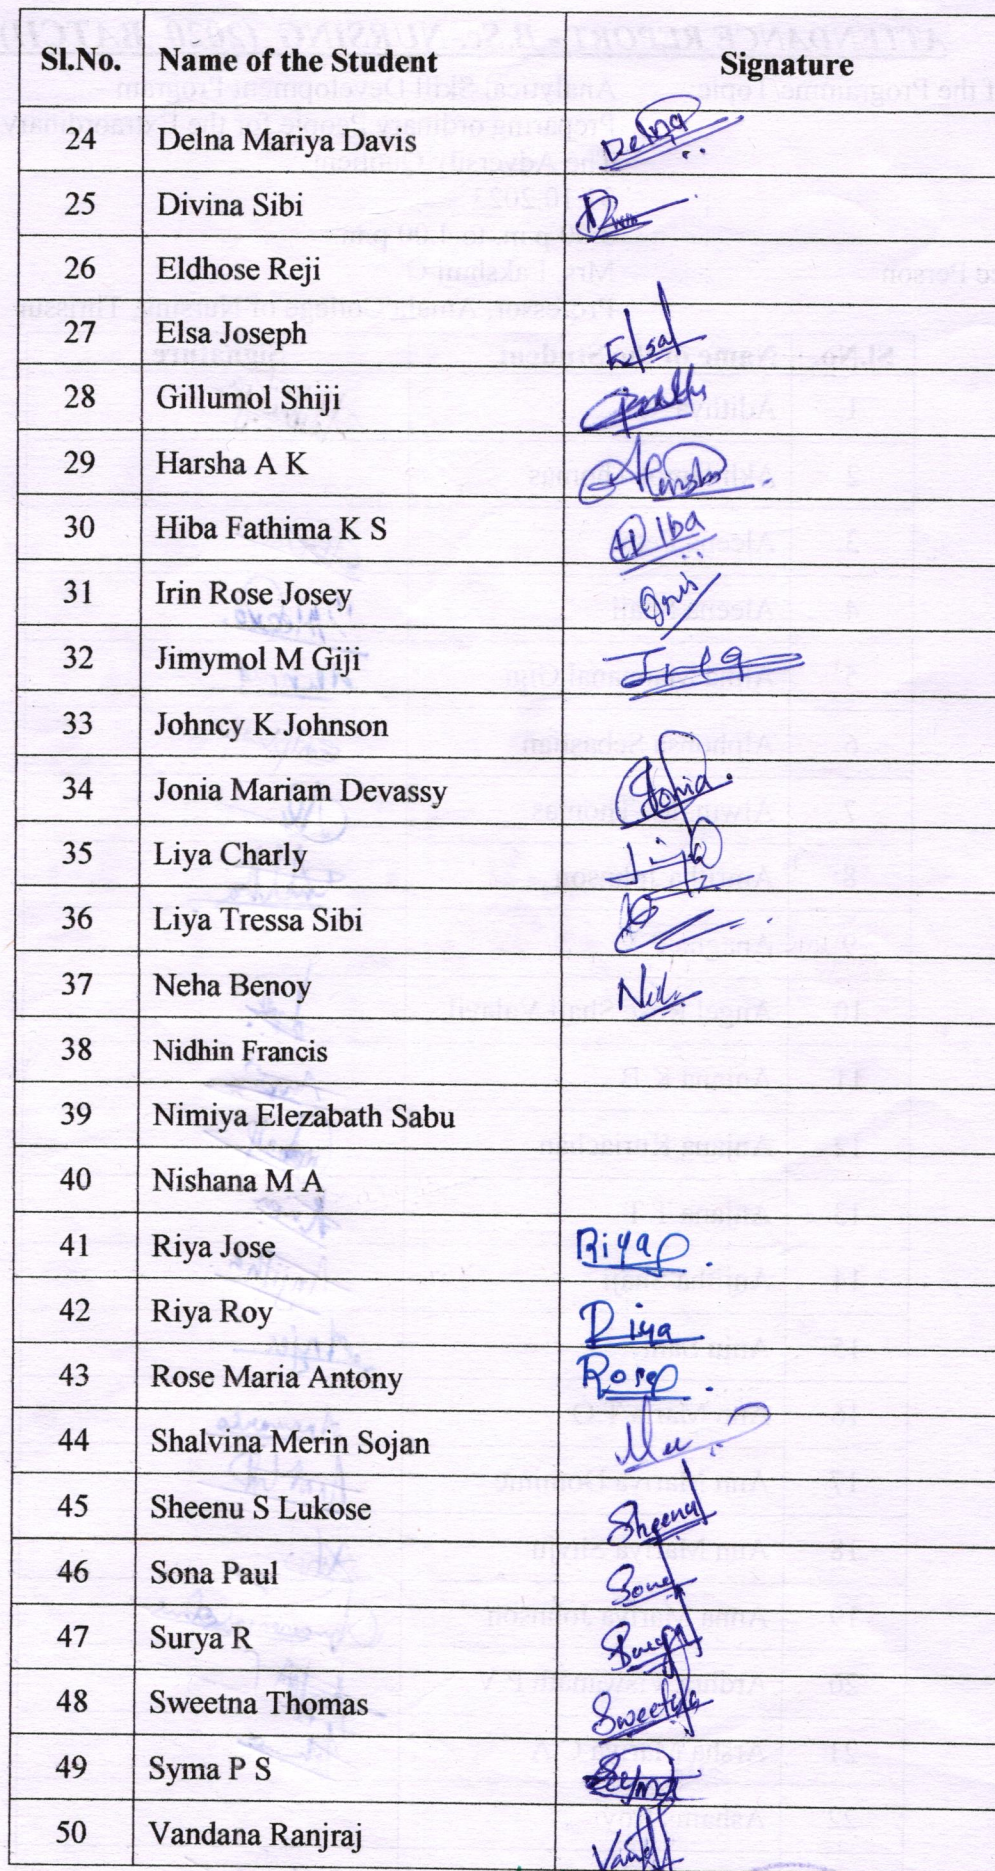 Sl.No. Name of the Student Signature
24 Delna Mariya Davis Delna
25 Divina Sibi
26 Eldhose Reji
27 Elsa Joseph Elsa
28 Gillumol Shiji
29 Harsha A K Harsha
30 Hiba Fathima K S Hiba
31 Irin Rose Josey
32 Jimymol M Giji
33 Johncy K Johnson
34 Jonia Mariam Devassy Jonia
35 Liya Charly Liya
36 Liya Tressa Sibi
37 Neha Benoy
38 Nidhin Francis
39 Nimiya Elezabath Sabu
40 Nishana M A
41 Riya Jose Riya
42 Riya Roy Riya
43 Rose Maria Antony Rose
44 Shalvina Merin Sojan
45 Sheenu S Lukose Sheenu
46 Sona Paul Sona
47 Surya R Surya
48 Sweetna Thomas Sweetna
49 Syma P S Syma
50 Vandana Ranjraj